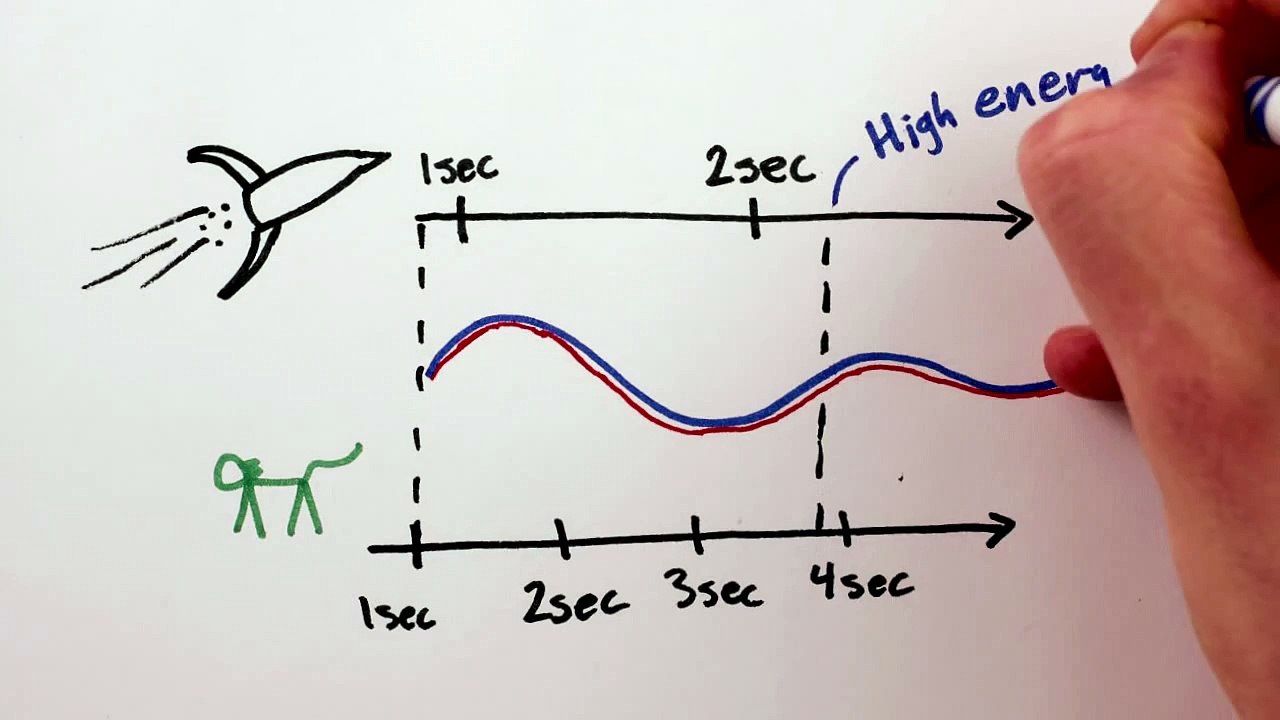 High energ
1sec
2sec
1sec
2sec
3sec
4sec